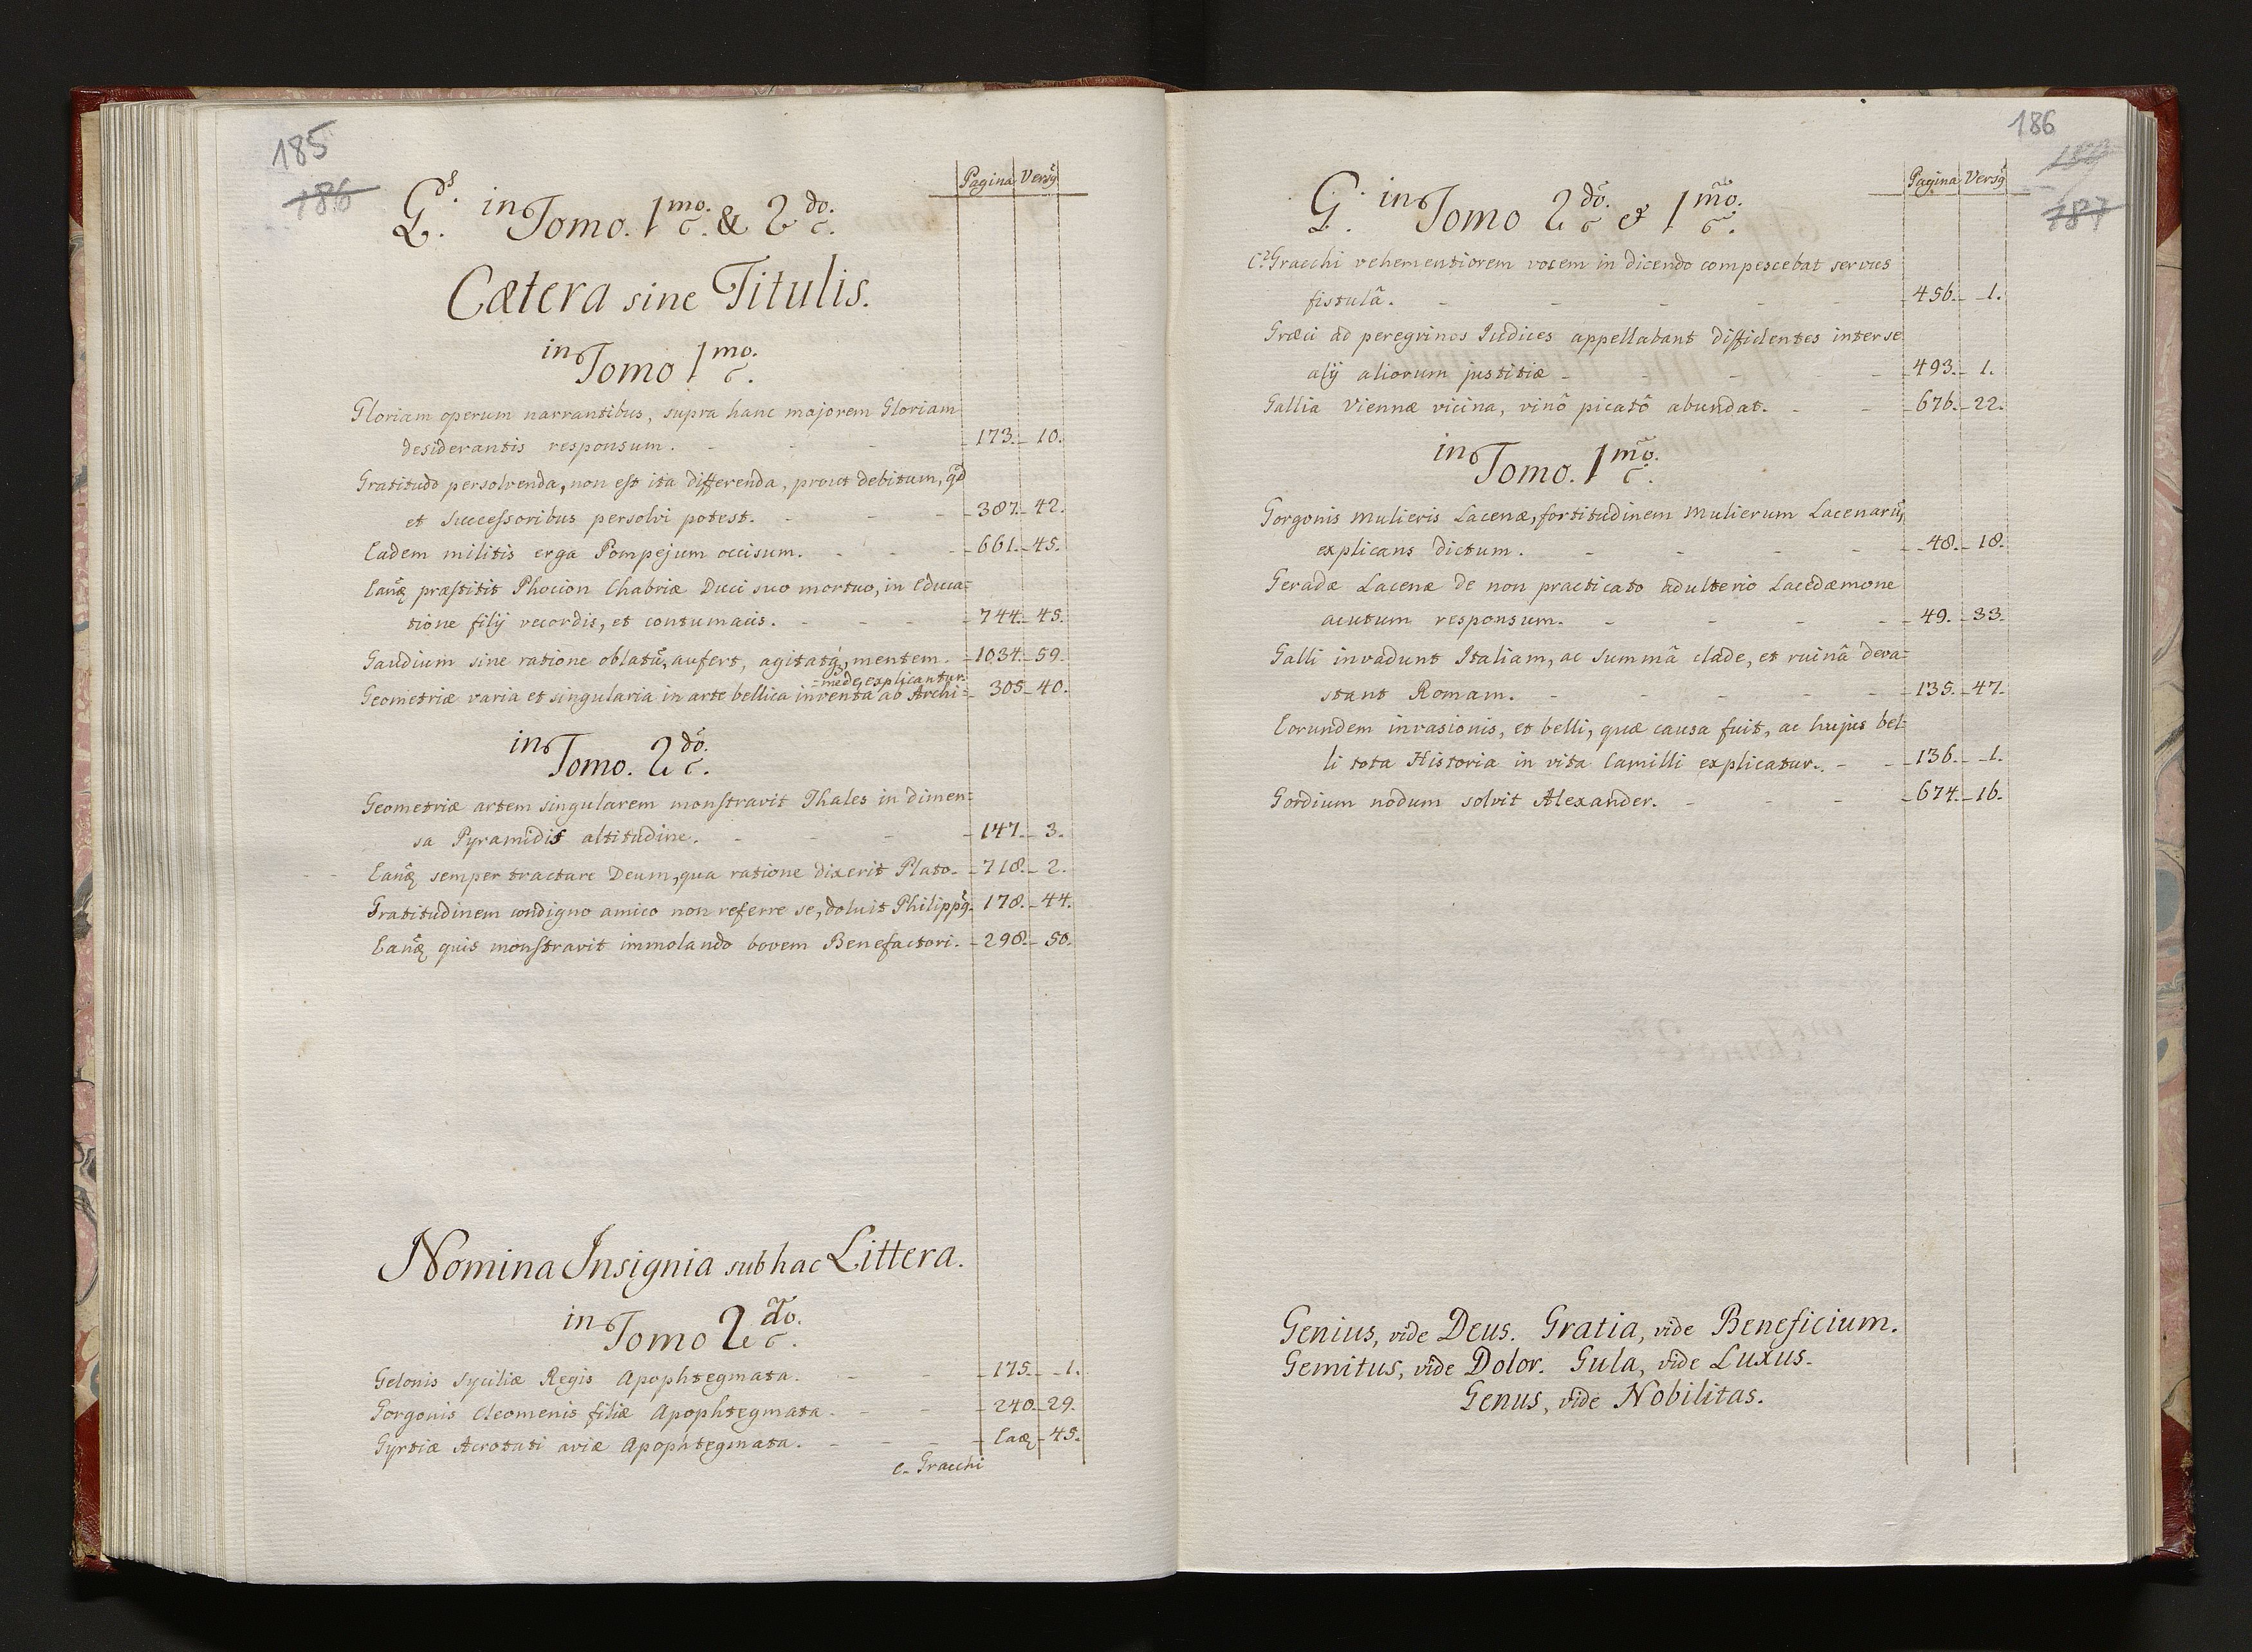 185
186
Pagina Versq
G. in Tomo. 1mo. & 2do.
Cætera sine Titulis.
in Tomo 1mo.
Gloriam operum narrantibus, supra hanc majorem Gloriam
desiderantis responsum. - - - - 173. - 10.
Gratitudo persolvenda, non est ita differenda, prout debitum, qd
et Successoribus persolvi potest. - - - - 387. - 42.
Eadem militis erga Pompejum occisum. - - - - 661. - 45.
Eanq præstitit Phocion Chabriæ Duci suo mortuo, in Educa=
tione filij vecordis, et contumacis. - - - - 744. - 45.
Gaudium sine ratione oblatũ, aufert, agitatq, mentem. - 1034. - 59.
=mede, explicantur.
Geometriæ varia et singularia in arte bellica inventa ab Archi= - 305 - 40.
in Tomo. 2do.
Geometriæ artem singularem monstravit Thales in dimen=
sa Pyramidis altitudine. - - - - 147. - 3.
Eanq semper tractare Deum, qua ratione dixerit Plato. - 718. - 2.
Gratitudinem condigno amico non referre se, doluit Philippq. 178. - 44.
Eanq quis monstravit immolando bovem Benefactori. - 298. - 50.
Nomina Insignia sub hac Littera.
in Tomo 2do.
Gelonis Syciliæ Regis Apophtegmata. - - - 175. - 1.
Gorgonis Cleomenis filiæ Apophtegmata. - - - 240. - 29.
Gyrtiæ Acrotati aviæ Apophtegmata. - - - - Eaq - 45.
C. Gracchi
186
187
Pagina Versq
G. in Tomo 2do. & 1mo.
C. Gracchi vehementiorem vocem in dicendo compescebat servus
fistulâ. - - - - - 456. - 1.
Græci ad peregrinos Iudices appellabant diffidentes inter se
alij aliorum justitiæ - - - - 493. - 1.
Gallia Viennæ vicina, vinô picatô abundat. - - - 676. - 22.
in Tomo. 1mo.
Gorgonis Mulieris Lacenæ, fortitudinem Mulierum Lacenarũ,
explicans dictum. - - - - - 48. - 18.
Geradæ Lacenæ de non practicato adulterio Lacedæmone
acutum responsum. - - - - - 49. - 33.
Galli invadunt Italiam, ac summâ clade, et ruinâ deva=
stant Romam. - - - - - 135. - 47.
Eorundem invasionis, et belli, quæ causa fuit, ac hujus bel=
li tota Historia in vita Camilli explicatur. - - 136. - 1.
Gordium nodum solvit Alexander. - - - - 674. - 16.
Genius, vide Deus. Gratia, vide Beneficium.
Gemitus, vide Dolor. Gula, vide Luxus.
Genus, vide Nobilitas.